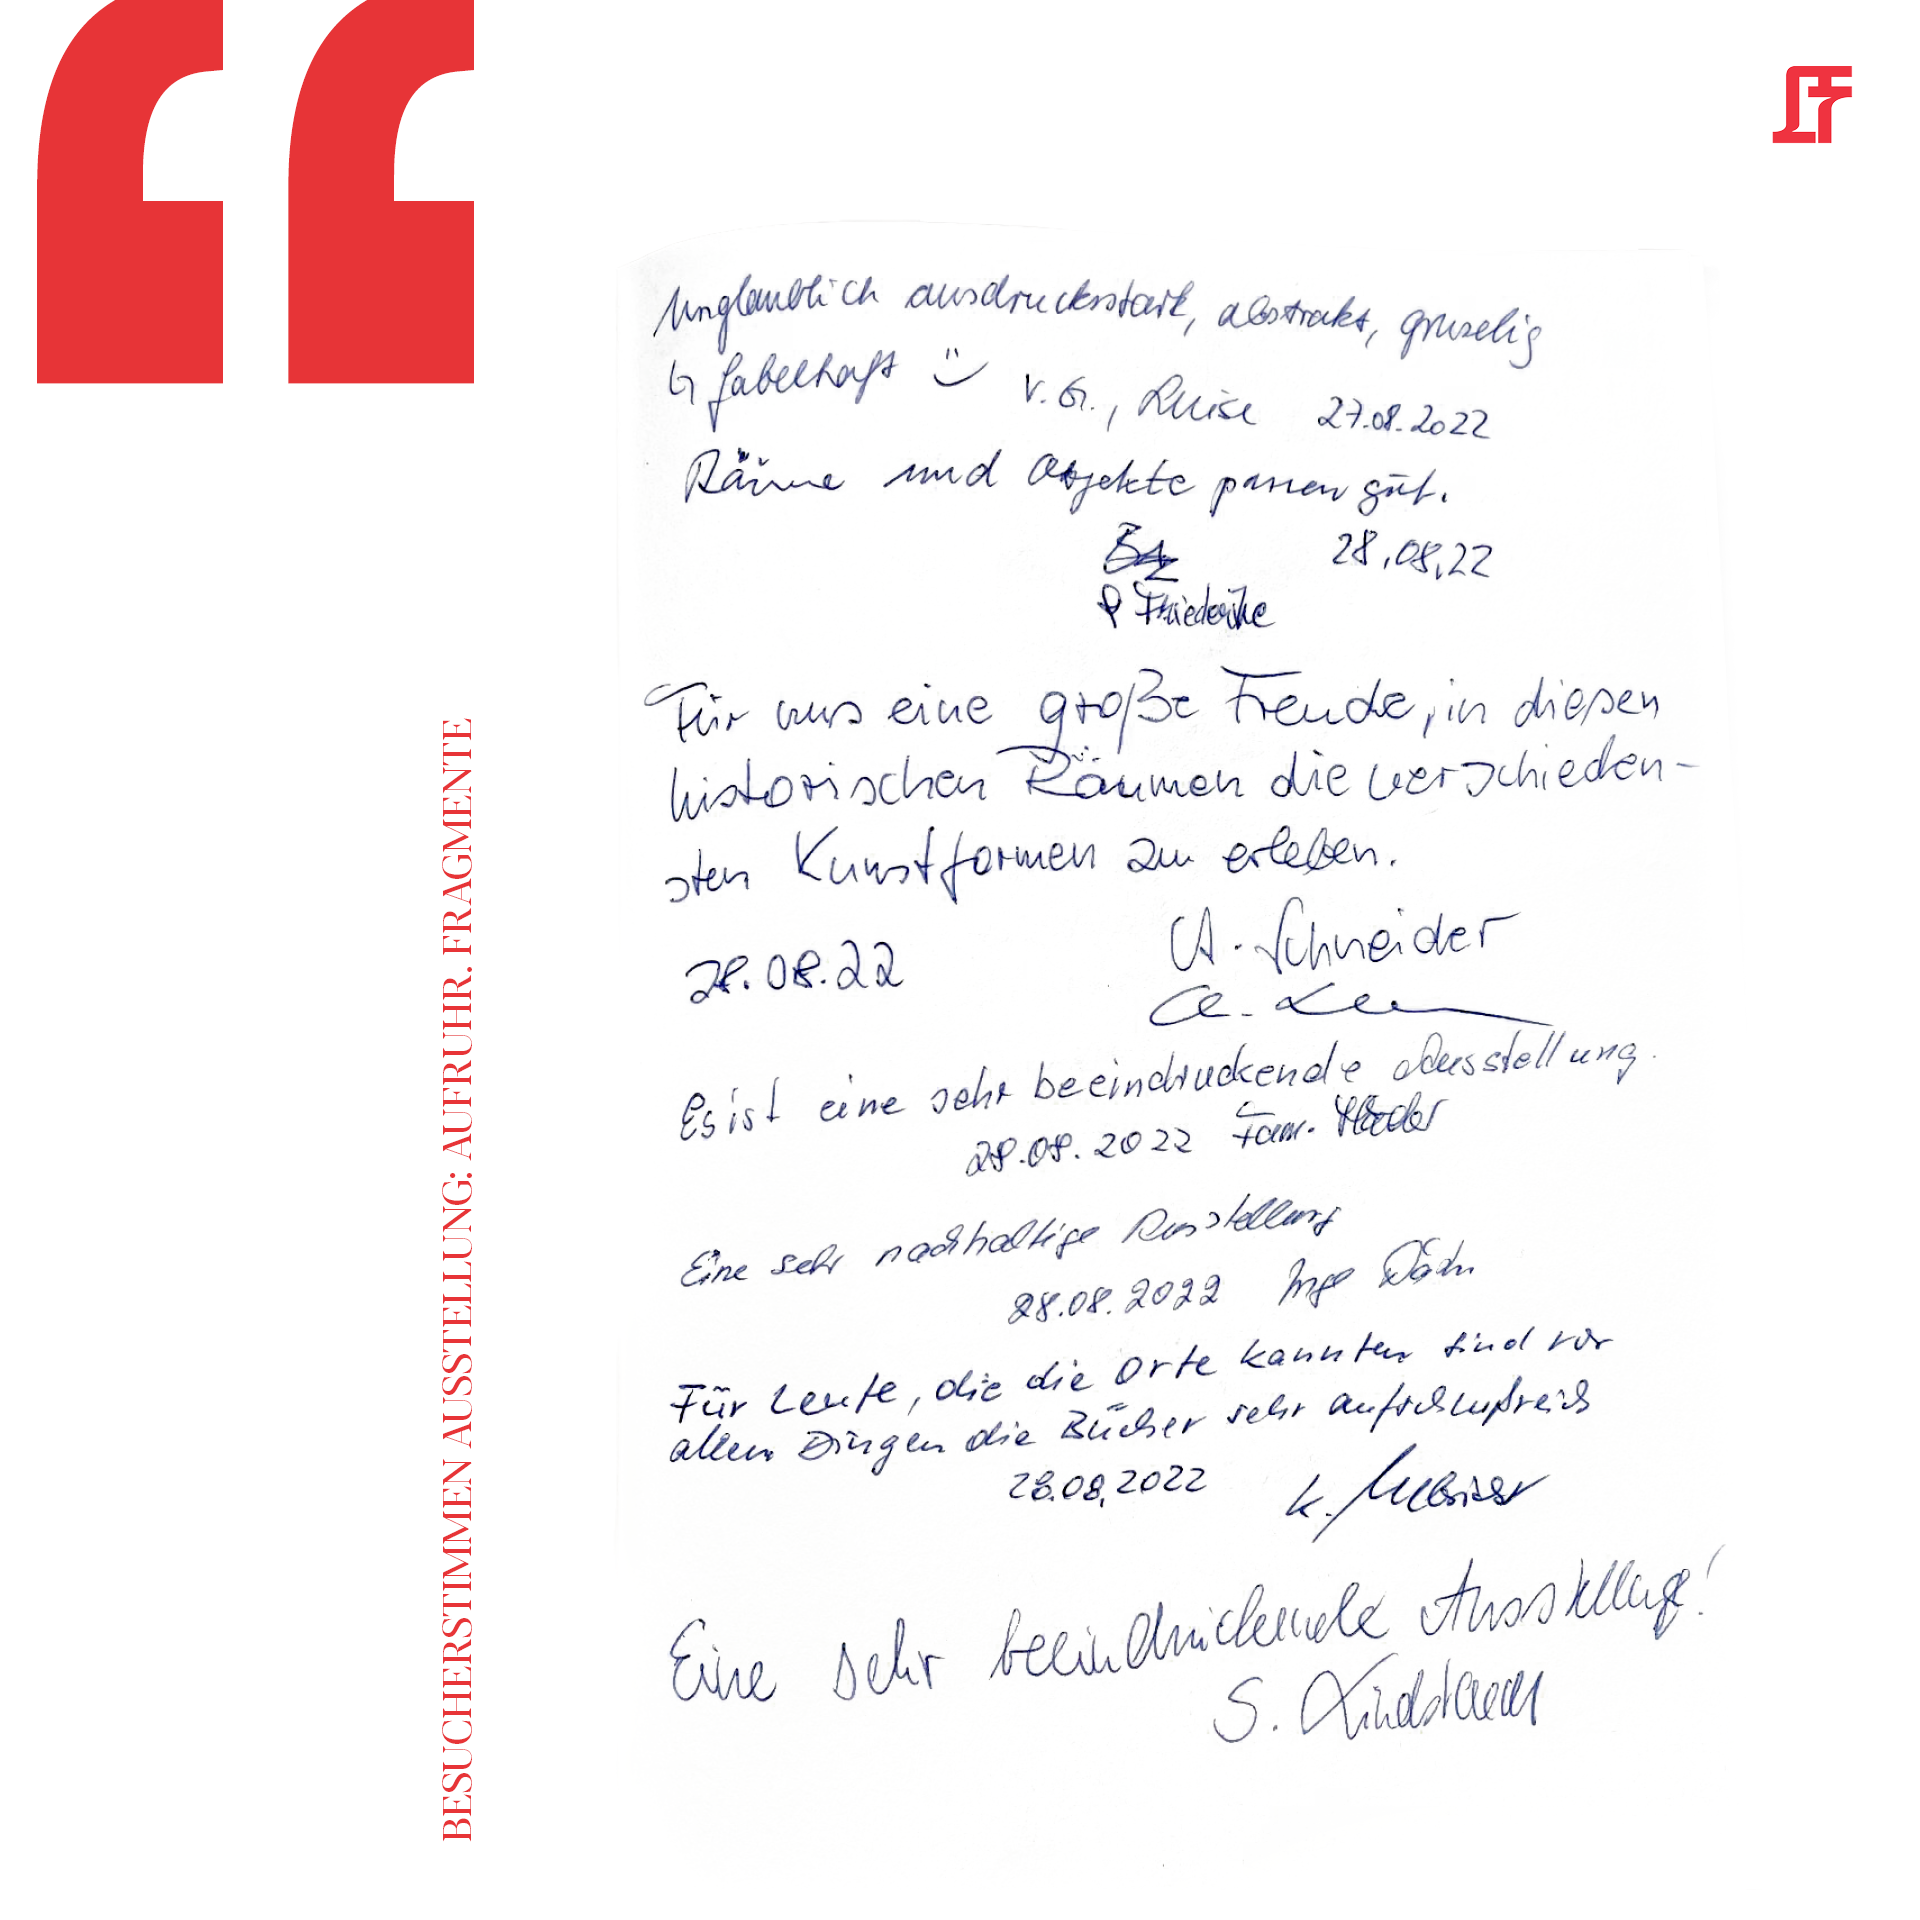 BESUCHERSTIMMEN AUSSTELLUNG: AUFRUHR. FRAGMENTE
Unglaublich ausdrucksstark, abstrakt, gruselig
↳ fabelhaft V. G., Luise 27.08.2022
Räume und Objekte passen gut.
28.08.22
Friederike
Für uns eine große Freude, in diesen
historischen Räumen die verschieden-
sten Kunstformen zu erleben.
28.08.22 A. Schneider
Es ist eine sehr beeindruckende Ausstellung.
28.08.2022 Fam.
Eine sehr nachhaltige Ausstellung
28.08.2022 Inge
Für Leute, die die Orte kannten sind vor
allen Dingen die Bücher sehr aufschlußreich
28.08.2022 K.
Eine sehr beeindruckende Ausstellung!
S.